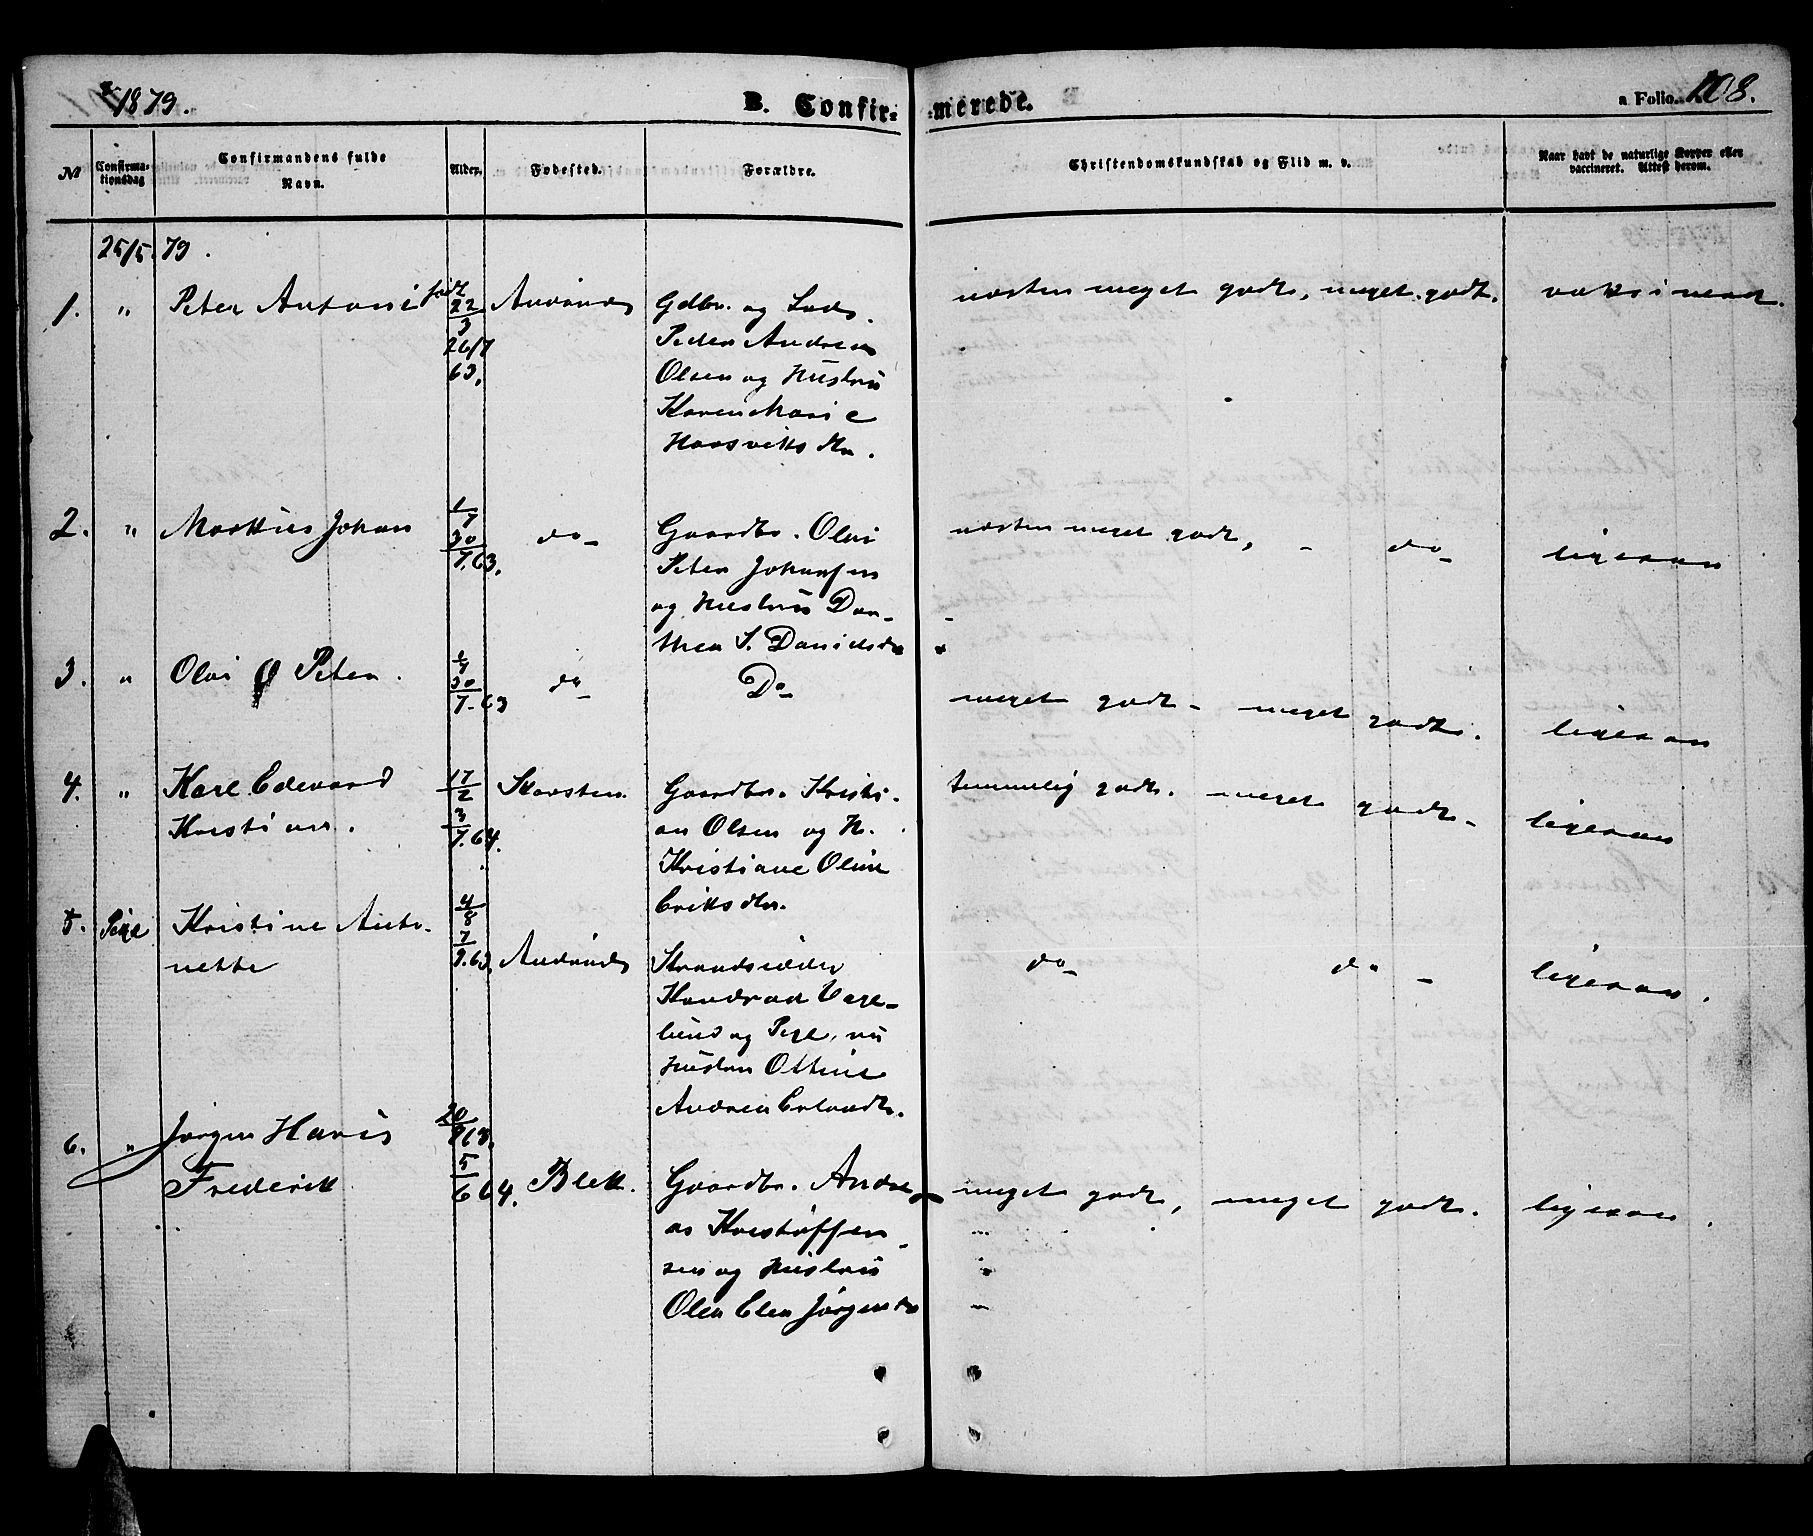 1879.
B. Confir-
merede.
a Folio. 108.
№
Confirma-
tionsdag
Confirmandens fulde
Navn.
Alder.
Fødested.
Forældre.
Christendomskundskab og Flid m. v.
Naar havt de naturlige Kopper eller
vaccineret. Attest derom.
25/5. 79.
1. " Peter Antoni født 22/3 26/7 63. Andvinds Gdbr. og Lods.
Peder Andreas
Olsen og Hustru
Karen Marie
næsten meget godt, meget godt. vaksinerat.
2. " Markus Johan 1/7 30/7.63. do- Gaardbr. Olai
Peter Johansen
og Hustru Dor-
thea S. Danielsdr
næsten meget godt, - do- ligesaa
3. " Olai Peter. 1/7 30/7.63 do- Do-
meget godt - meget godt. ligesaa
4. " Karl Edevard
Kristian. 17/2 3/7.64. Skarsten. Gaardbr. Kristi-
an Olsen og H.
Kristiane Oline
Eriksdtr.
temmelig godt. meget godt - ligesaa
5. Pige Kristine Anto-
nette 4/8 7/9.63. Andvinds Strandsidder
og Pige, nu
Hustru Ottine
Andrea
do- do - ligesaa.
6. " Jørgen Hans
Frederik 5/6 64. Blek. Gaardbr. Andre-
as Kristoffer-
sen og Hustru
Olea Elen Jørgensdr
meget godt, meget godt. ligesaa.